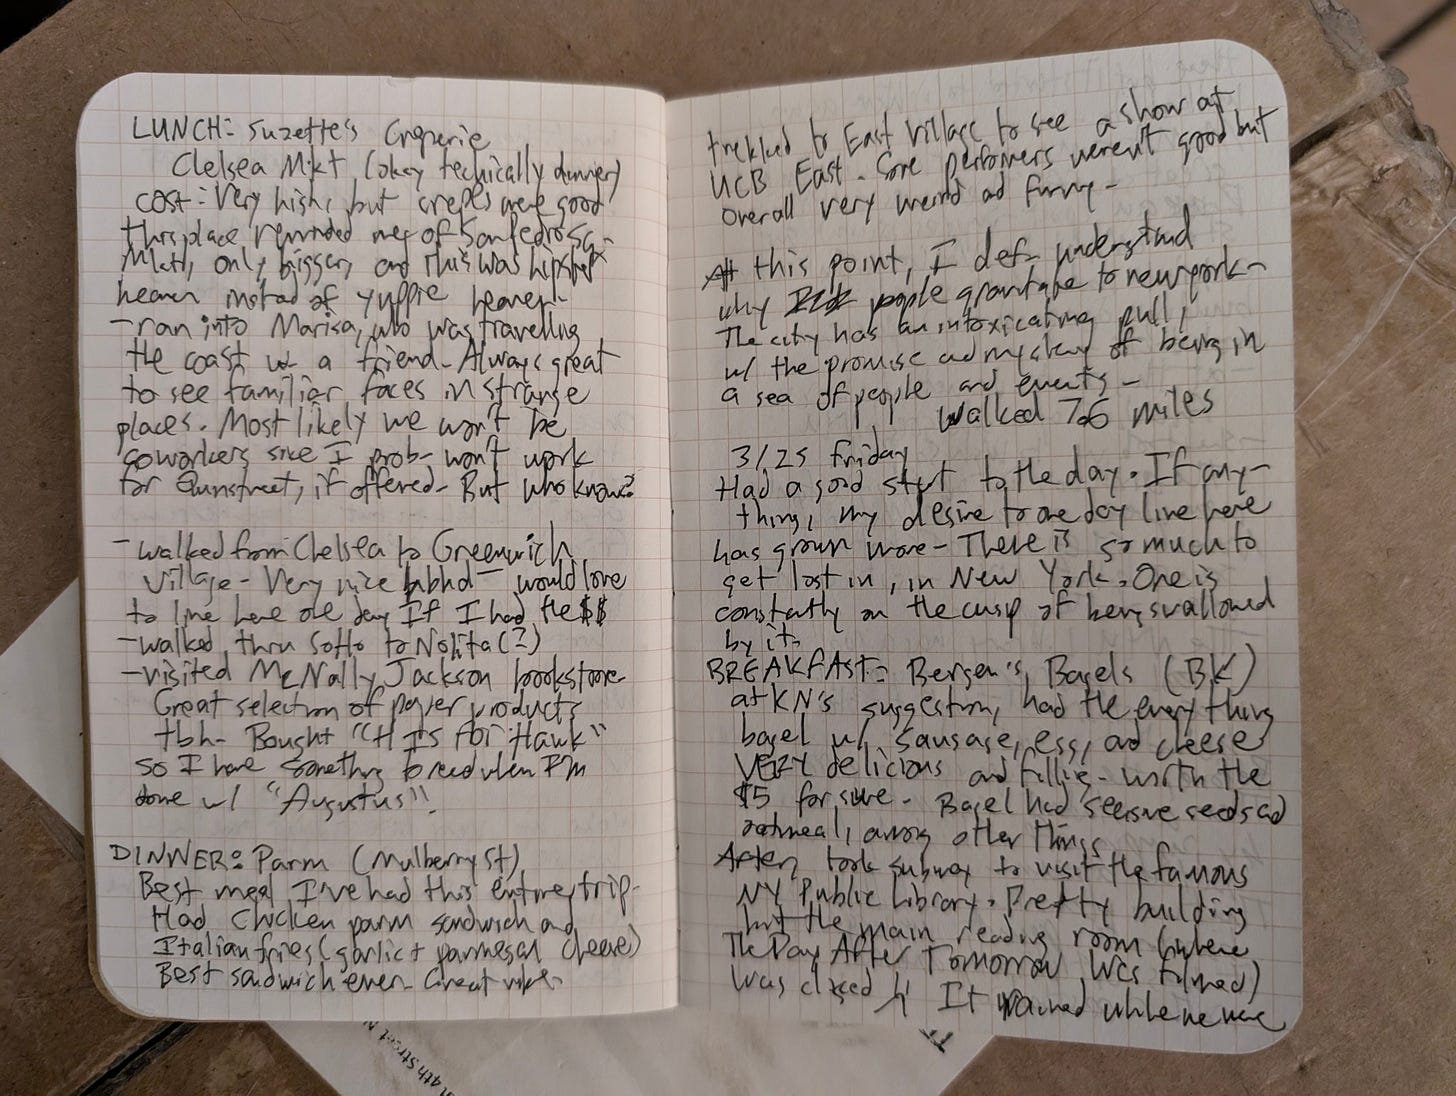 LUNCH: Suzette's Creperie
Chelsea Mkt (okay technically dinner)
COST: Very high, but crepes were good
this place reminded me of San Pedro Sq.
Mkt, only bigger, and this was hipster
heaven instead of yuppie heaven-
- ran into Marisa, who was travelling
the coast w/ a friend- Always great
to see familiar faces in strange
places. Most likely we won't be
coworkers since I prob- won't work
for Quinstreet, if offered- But who knows?
- walked from Chelsea to Greenwich
Village- Very nice nbhd- would love
to live here one day If I had the $$
- walked thru SoHo to Nolita (?)
- visited McNally Jackson bookstore
Great selection of paper products
tbh- Bought "H Is for Hawk"
so I have something to read when I'm
done w/ "Augustus".
DINNER: Parm (Mulberry St)
Best meal I've had this entire trip-
Had Chicken parm sandwich and
Italian fries (garlic + parmesan cheese)
Best sandwich ever- Great
trekked to East Village to see a show at
UCB East- Some performers weren't good but
overall very weird and funny-
At this point, I def- understand
why people gravitate to new york-
The city has an intoxicating pull,
w/ the promise and mystery of being in
a sea of people and events-
Walked 7.6 miles
3/25 Friday
Had a good start to the day. If any-
thing, my desire to one day live here
has grown more- There is so much to
get lost in, in New York. One is
constantly on the cusp of being swallowed
by it.
BREAKFAST: Bergen's Bagels (BK)
at KN's suggestion, had the everything
bagel w/ sausage, egg, and cheese
VERY delicious and filling- worth the
$5 for sure- Bagel had sesame seeds and
oatmeal, among other things
After, took subway to visit the famous
NY Public Library. Pretty building
but the main reading room (where
The Day After Tomorrow was filmed)
was closed :( It rained while we were